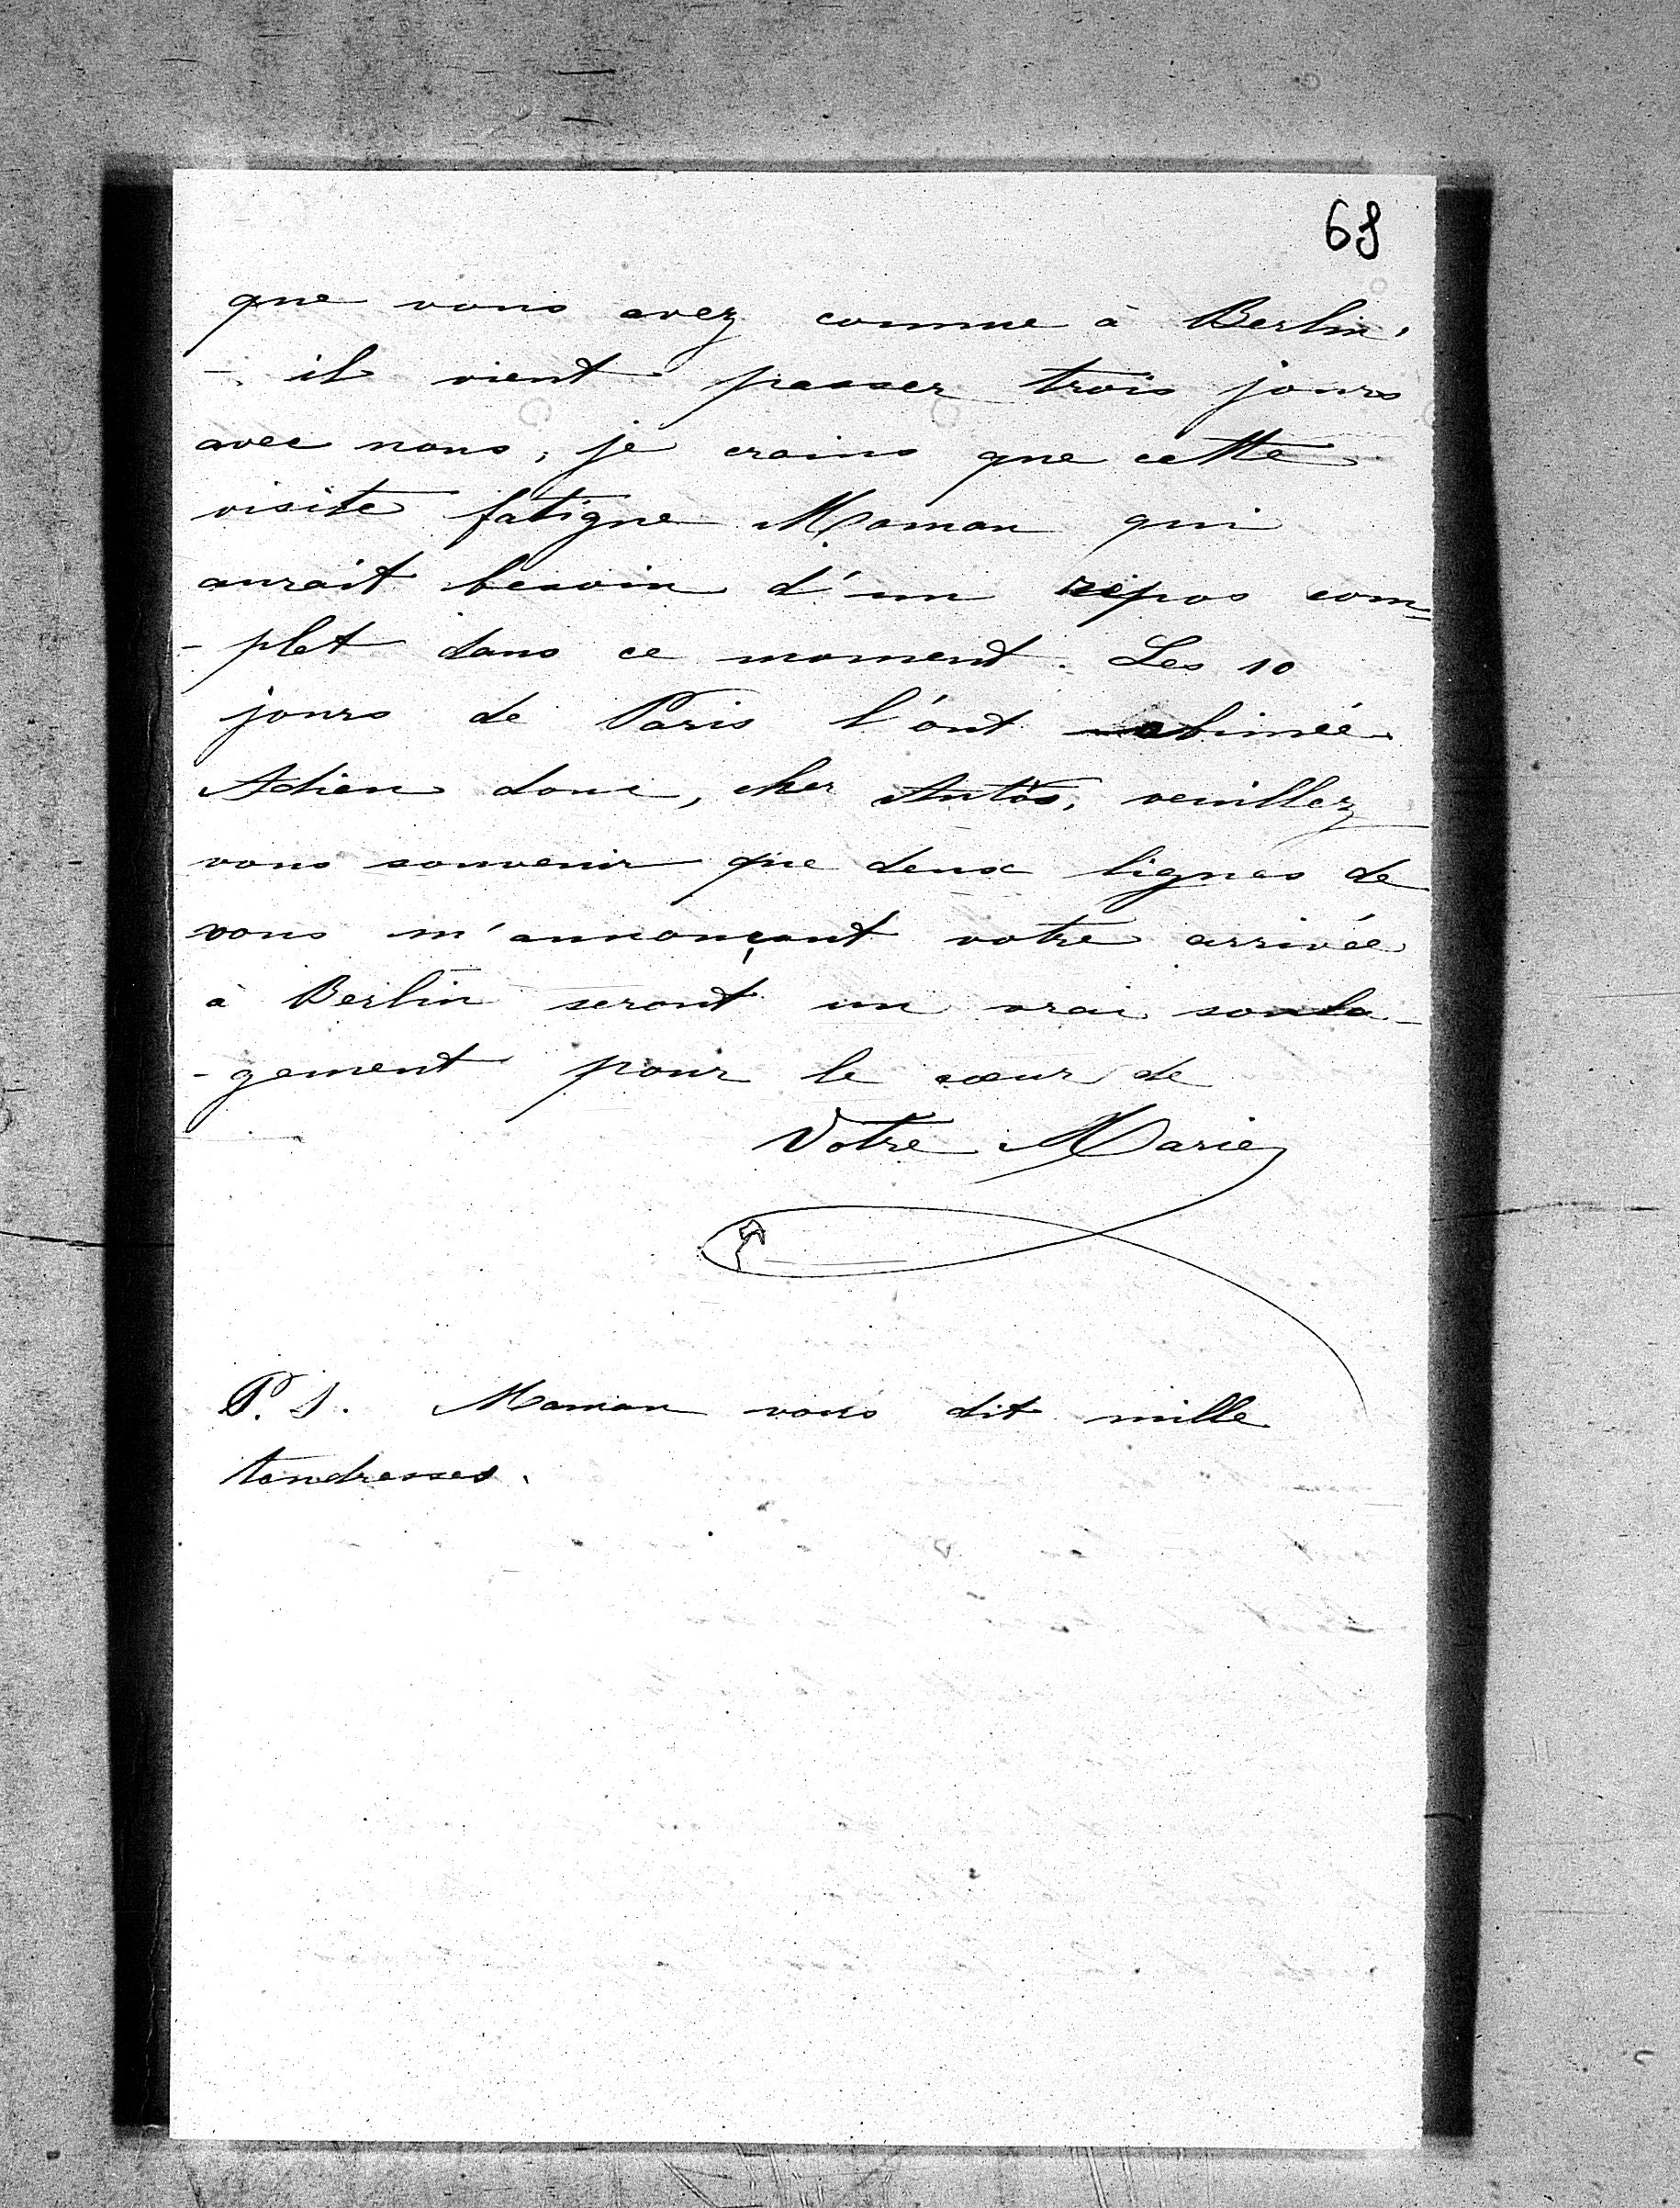 68
que vous avez comme à Berlin,
- il vient passer trois jours
avec nous, je crains que cette
visite fatigue Maman qui
aurait besoin d'un repos com-
-plet dans ce moment. Les 10
jours de Paris l'ont abimée
Adieu donc, cher Antôs, veuillez
vous souvenir que deux lignes de
vous m'annonçant votre arrivée
à Berlin seront un vrai soula-
-gement pour le cœur de
Votre Marie
P. S. Maman vous dit mille
tendresses.